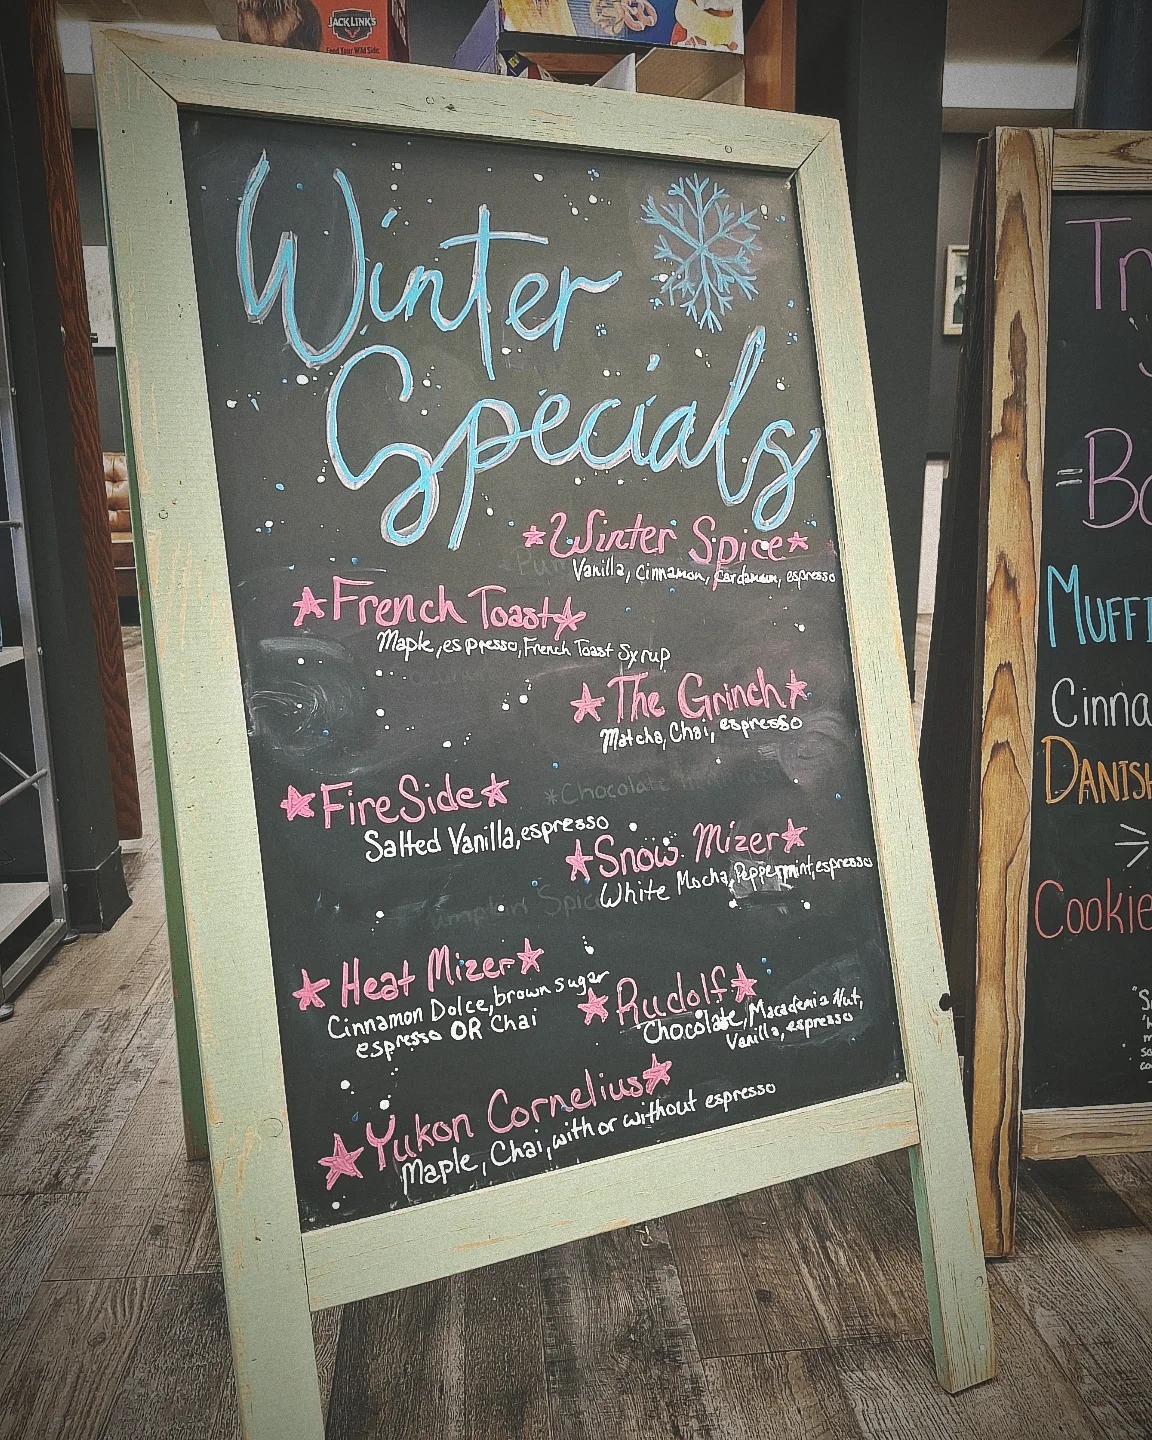 JACK LINK'S
Feed Your Wild Side.
Winter
Specials
Winter Spice
Vanilla, Cinnamon, Cardamom, espresso
French Toast
Maple, espresso, French Toast Syrup
The Grinch
Matcha, Chai, espresso
*Chocolate
FireSide
Salted Vanilla, espresso
Snow Mizer
White Mocha, Peppermint, espresso
Pumpkin Spice
Heat Mizer
Cinnamon Dolce, brown sugar
espresso OR Chai
Rudolf
Chocolate, Macadamia Nut,
Vanilla, espresso
Yukon Cornelius
Maple, Chai, with or without espresso
Muffi
Cinna
Danish
Cookie